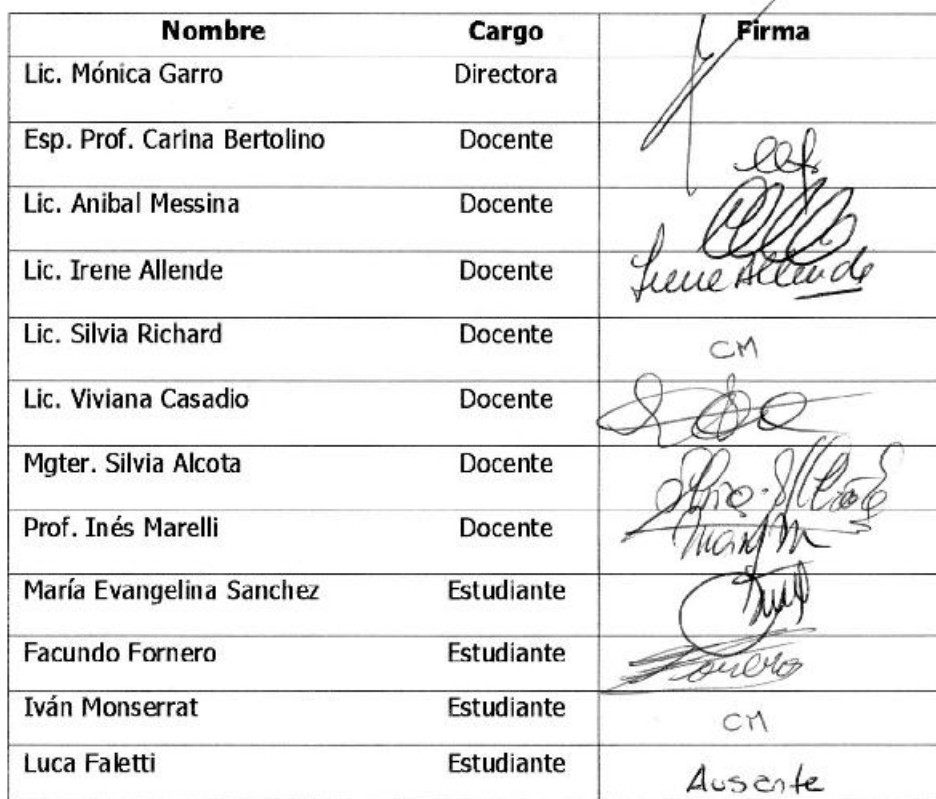 Nombre Cargo Firma
Lic. Mónica Garro Directora
Esp. Prof. Carina Bertolino Docente
Lic. Anibal Messina Docente
Lic. Irene Allende Docente Irene Allende
Lic. Silvia Richard Docente CM
Lic. Viviana Casadio Docente
Mgter. Silvia Alcota Docente
Prof. Inés Marelli Docente
María Evangelina Sanchez Estudiante
Facundo Fornero Estudiante Fornero
Iván Monserrat Estudiante CM
Luca Faletti Estudiante Ausente